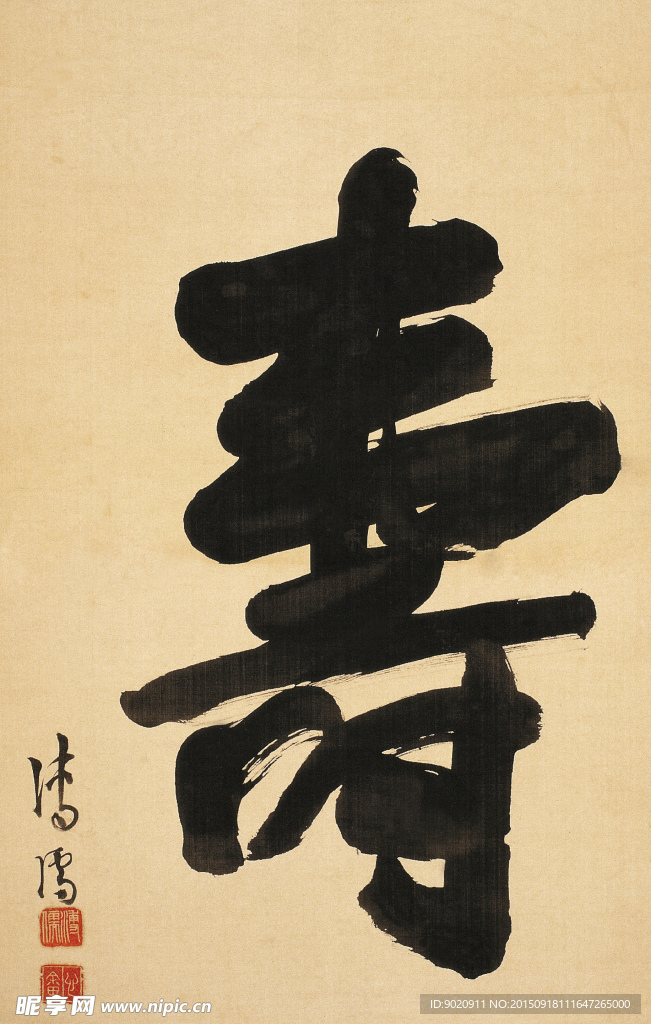 壽
溥儒
溥儒
心畬
昵享网 www.nipic.cn
ID:9020911 NO:20150918111647265000